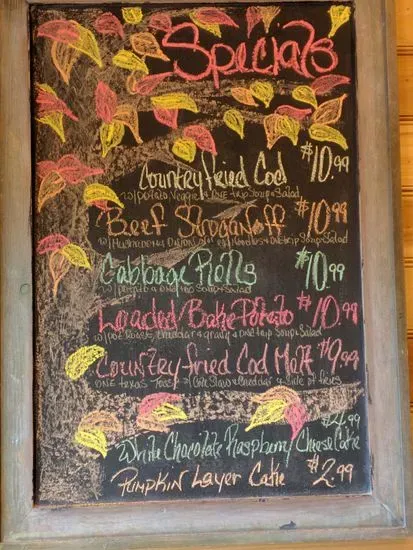 Specials
Country fried Cod $10.99
w/ potato Veggie & one trip Soup & Salad
Beef Stroganoff $10.99
w/ Mushrooms & Onions over Noodles & one trip Soup & Salad
Cabbage Rolls $10.99
w/ potato & one trip Soup & Salad
Loaded Bake Potato $10.99
w/ pot Roast, Cheddar & gravy & one trip Soup & Salad
Country fried Cod Melt $9.99
ONE texas Toast w/ Cole Slaw & Cheddar & Side of fries
$4.99
White Chocolate Raspberry Cheese Cake
Pumpkin Layer Cake $2.99